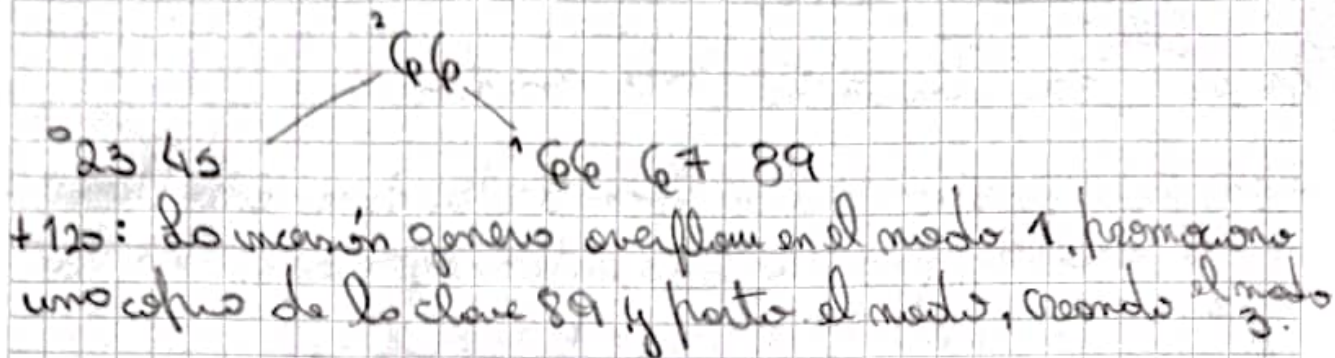 2 66
0 23 45 1 66 67 89
+120: La inserción genera overflow en el nodo 1, promociono
una copia de la clave 89 y parto el nodo, creando el nodo
3.